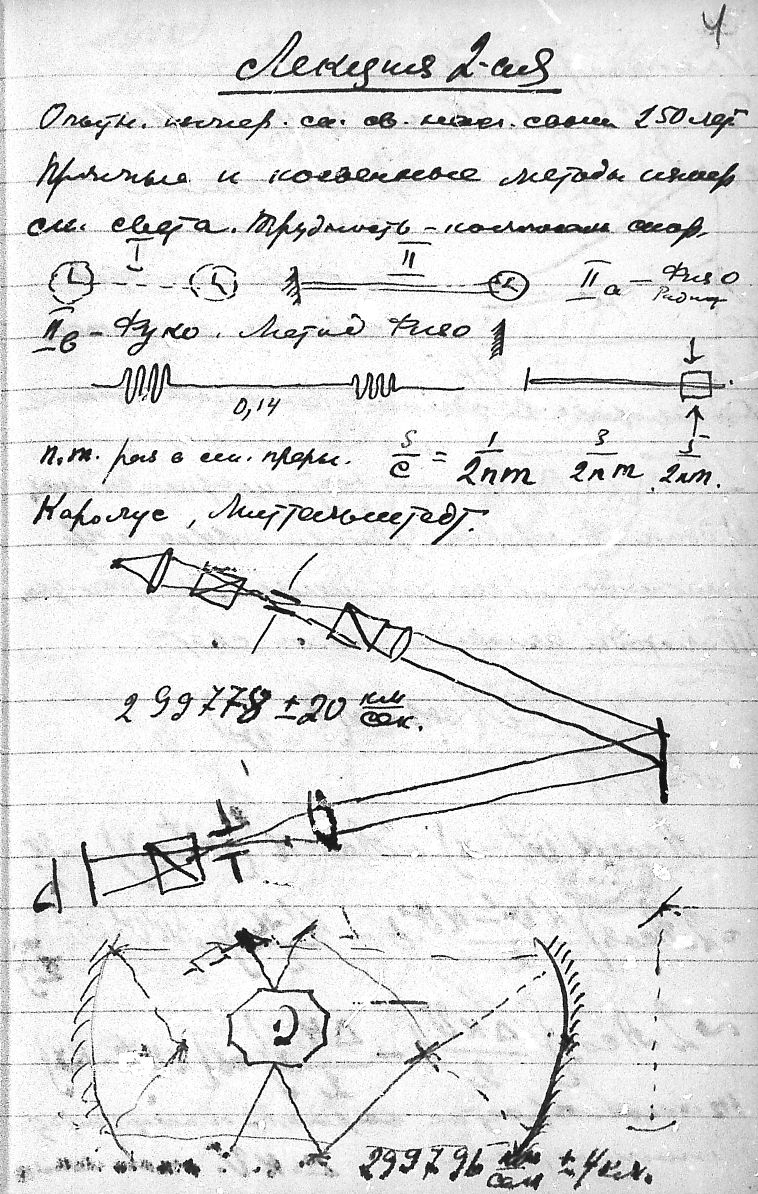 4
Лекция 2-ая
Опытн. измер. ск. св. насч. свыше 250 лет
Прямые и косвенные методы измер
ск. света. Трудность – колоссал скор.
I II IIа – Физо
IIв – Фуко. Метод Физо
0,14
п.т. раз в сек. преры. S/c = 1/2nm 3/2nm 5/2nm.
Каролус, Миттельштедт.
299778 ± 20 км/сек.
299796 км/сек ± 4 км.